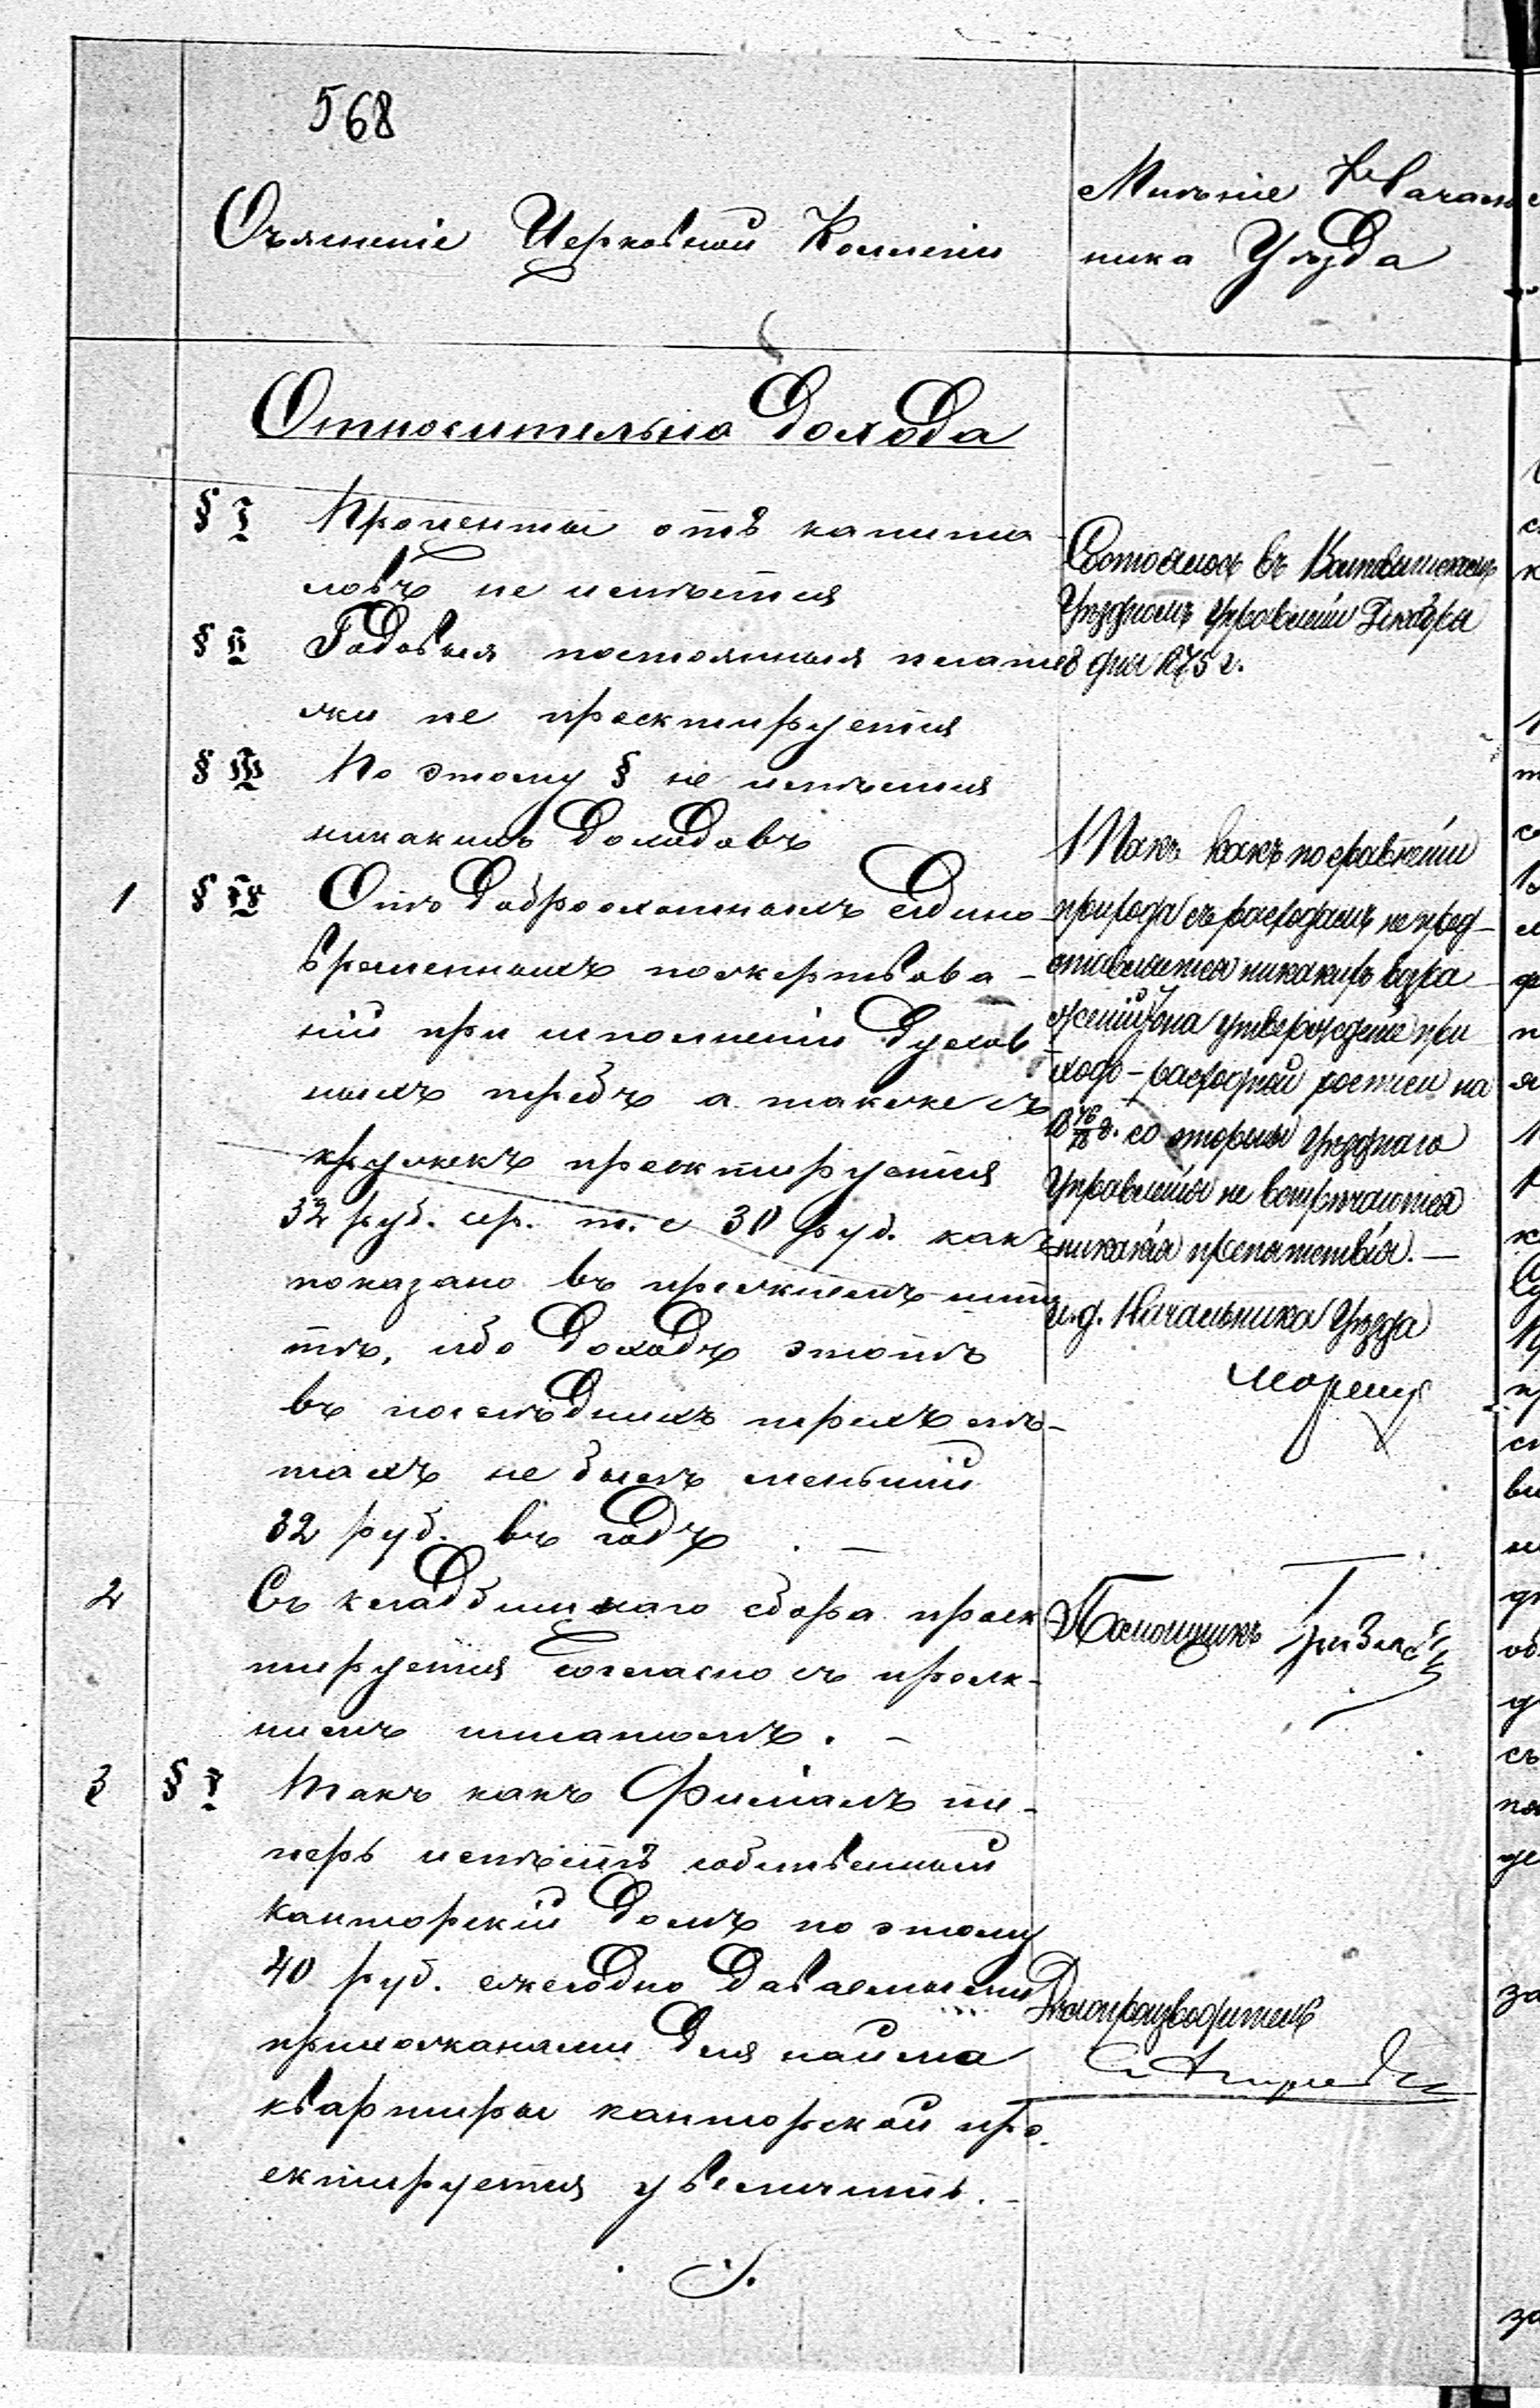 568
Объясненіе Церковной Коллегіи
Относительно Дохода
§ I Проценты отъ капита
ловъ не имѣется
§ II Годовыя постоянныя плате
жи не проектируется
§ III По этому § не имѣется
никакихъ доходовъ
1 § IV Отъ доброохотныхъ едино-
временныхъ пожертвова-
ній при исполненіи духов
ныхъ требъ а также съ
кружекъ проектируется
32 руб. сер. т. е 30 руб. какъ
показано въ прежнемъ шта
тѣ, ибо доходъ этотъ
въ послѣднихъ трехъ лѣ-
тахъ не былъ меньшій
32 руб. въ годъ. —
2 Съ кладбищнаго сбора проек
тируется согласно съ преж-
нимъ штатомъ. —
3 § V Такъ какъ Филіалъ те-
перь имѣетъ собственный
канторскій домъ по этому
40 руб. ежегодно даваемыми
прихожанами для найма
квартиры канторской про-
ектируется увеличить. —
Мнѣніе Началь
ника Уѣзда
Состоялось въ
Уѣздномъ Управленіи Декабря
8 дня 1875 г.
Такъ какъ по сравненіи
прихода съ расходамъ не пред-
ставляется никакихъ возра
женій, на утвержденіе при
ходо-расходной росписи на
18 76/78 г. со стороны Уѣзднаго
Управленія не встрѣчаются
никакія препятствія. —
и. д. Начальника Уѣзда
Помощникъ
Дѣлопроизводитель